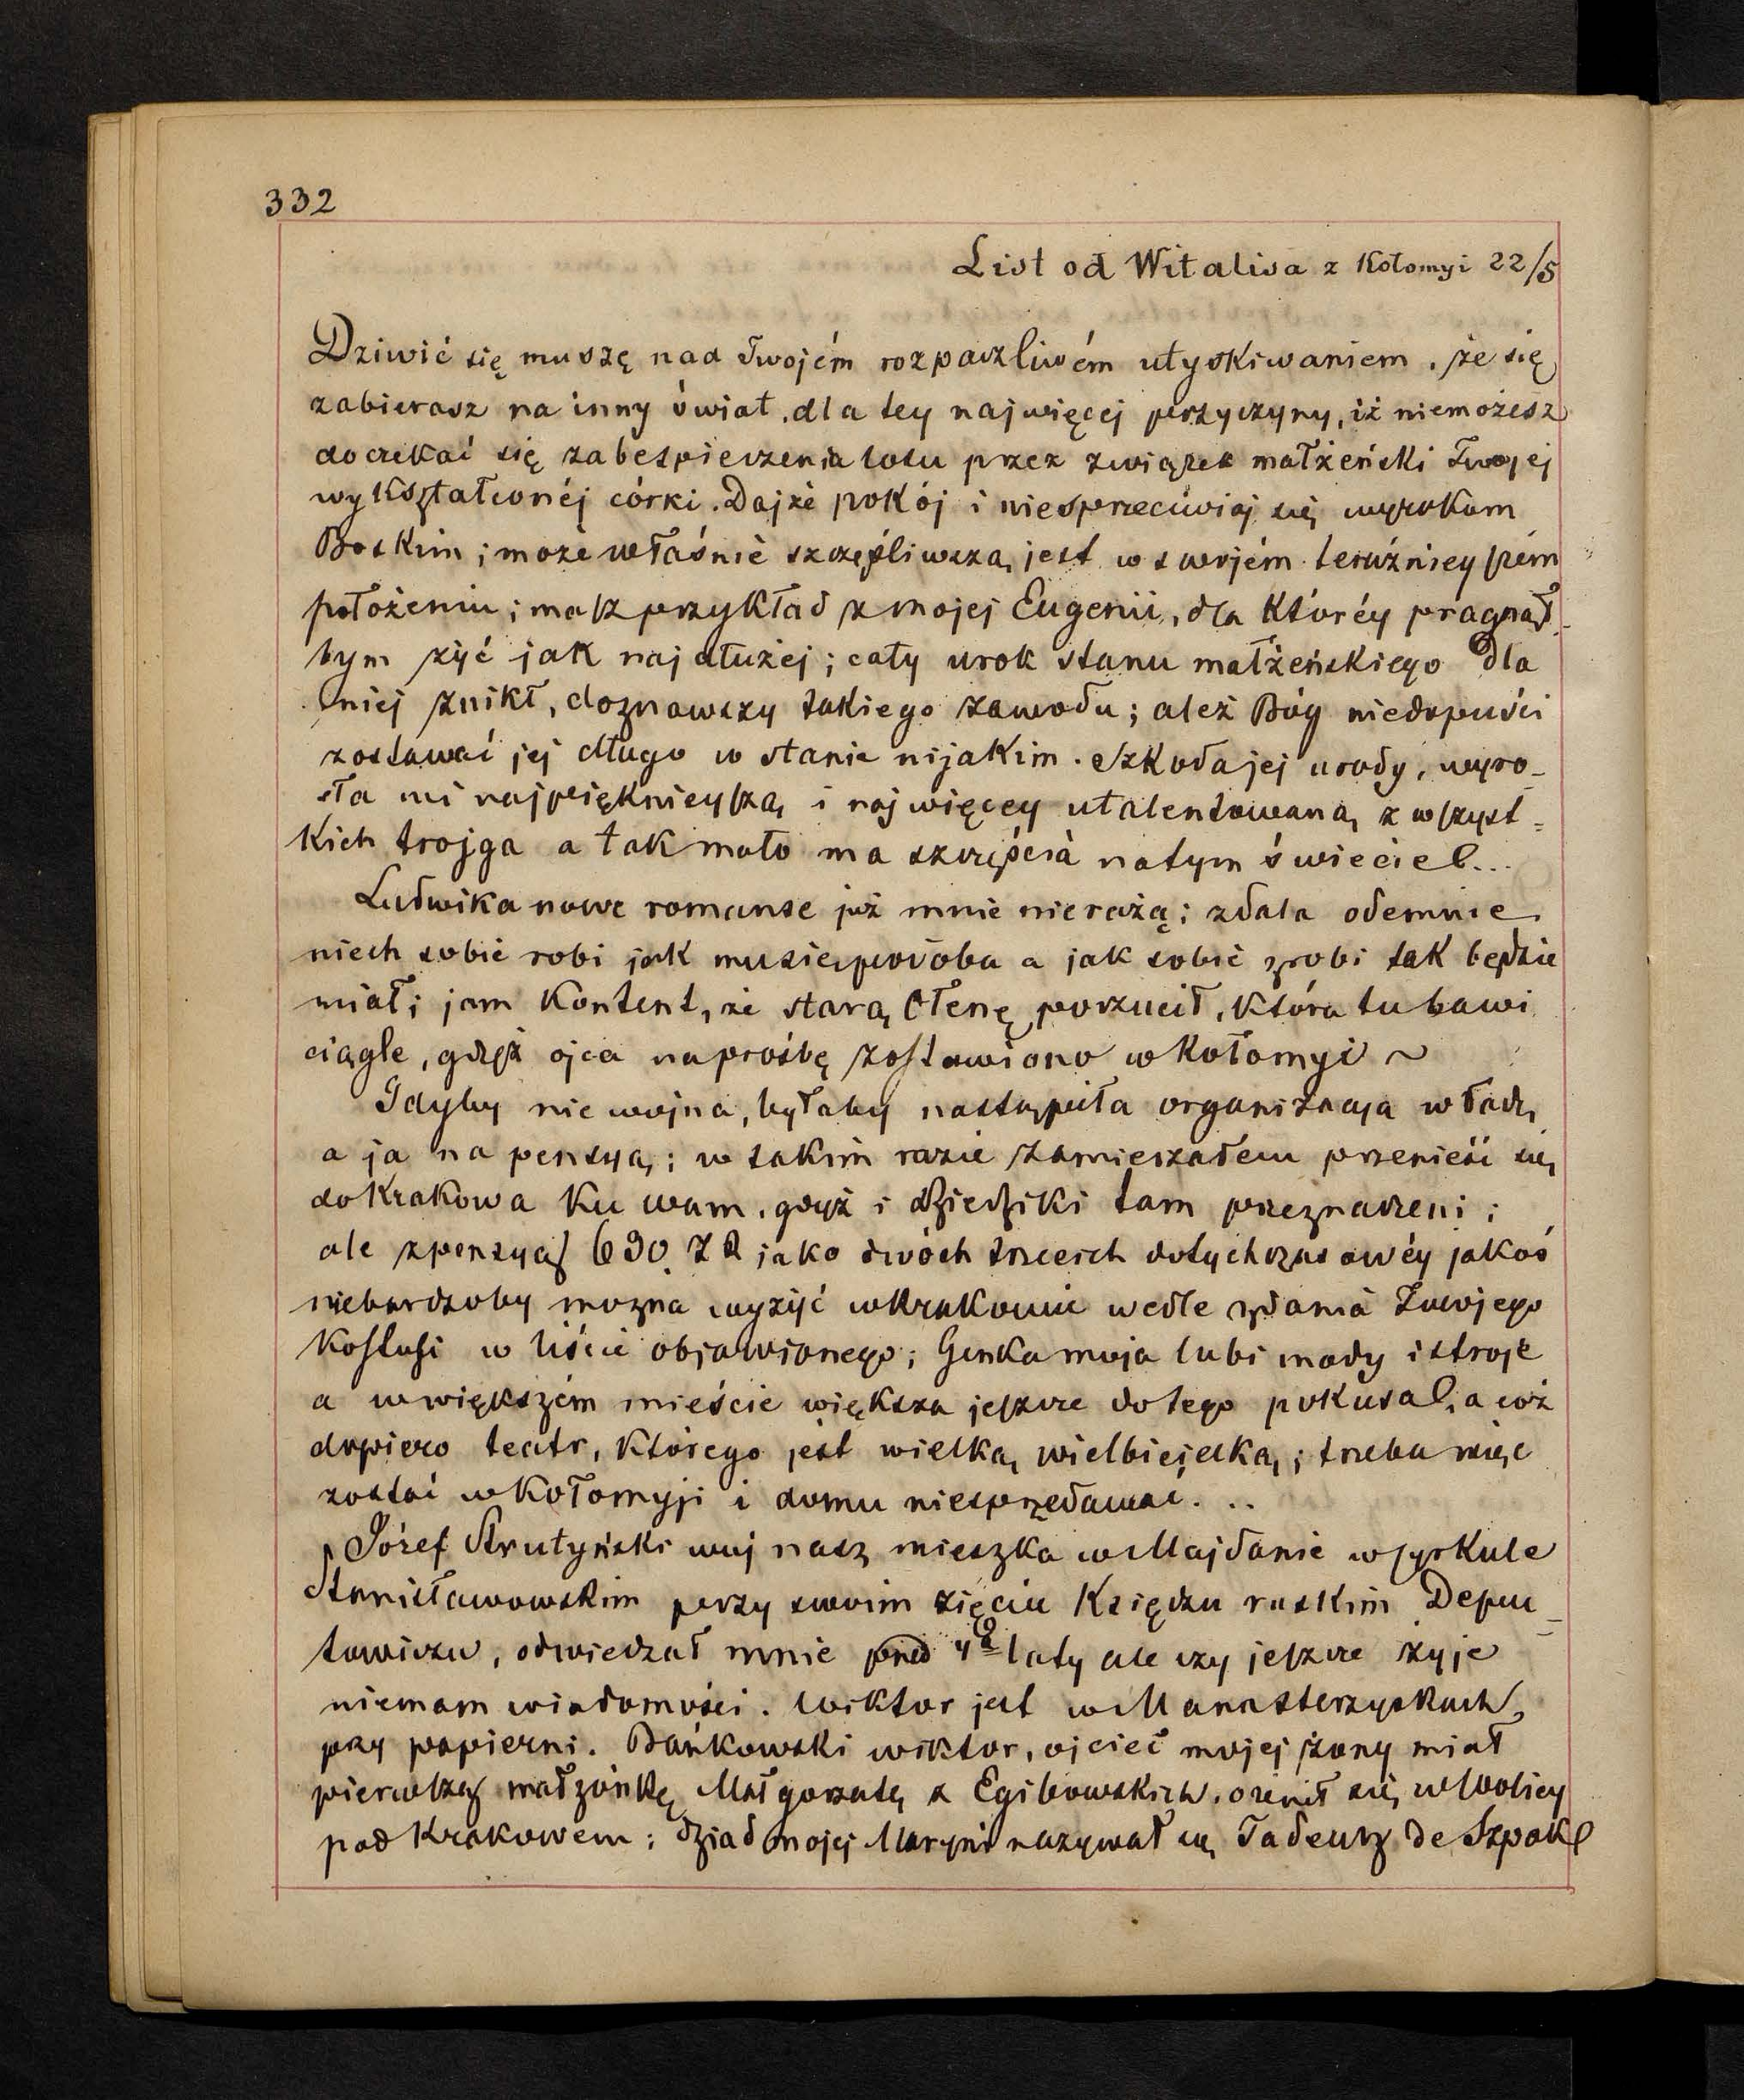 332
List od Witalisa z Kołomyi 22/5
Dziwić się muszę nad Twojém rozpaczliwém utyskiwaniem, że się
zabierasz na inny świat, dla tey najwięcej przyczyny, iż niemożesz
doczekać się zabespieczenia losu przez związek małżeński Twojej
wykształconéj córki. Dajże pokój i niesprzeciwiaj się wyrokom
Boskim; może właśnie szczęśliwszą jest w swojém teraźnieyszém
położeniu; masz przykład z mojej Eugenii, dla któréy pragnął
bym żyć jak najdłużej; cały urok stanu małżeńskiego dla
niej znikł, doznawszy takiego zawodu; ależ Bóg niedopuści
zostawać jej długo w stanie nijakim. Szkoda jej urody, wyro_
sła mi najpięknieyszą i najwięcey utalentowaną z wszyst=
kich trojga a tak mało ma szczęścia natym świecie!...
Ludwika nowe romanse już mnie nierażą; zdala odemnie
niech sobie robi jak musiępodoba a jak sobie zrobi tak będzie
miał; jam kontent, że starą Ołenę porzucił, która tu bawi
ciągle, gdyż ojca naprośbę zostawiono w Kołomyi ~
Gdyby nie wojna, byłaby nastąpiła organizacya władz,
a ja na pensyą; w takim razie zamierzałem przenieść się
do Krakowa ku wam, gdyż i Dziedziki tam przeznaczeni;
ale zpensyą 630 ZR jako dwóch trzecich dotychczasowéy jakoś
niebardzoby można wyżyć wKrakowie wedle zdania Twojego
Kostusi w liście objawionego; Genka moja lubi mody i stroje
a wwiększém mieście większa jeszcze dotego pokusa!, a cóż
dopiero teatr, którego jest wielką wielbicielką; trzeba więc
zostać wKołomyji i domu niesprzedawać...
Józef Strutyński wuj nasz mieszka wMajdanie wcyrkule
Stanisławowskim przy swoim zięciu Księdzu ruskim Depu_
towiczu, odwiedzał mnie przed 4ą laty ale czy jeszcze żyje
niemam wiadomości. Wiktor jest wManasterzyskach
przy papierni. Bańkowski wiktor, ojciec mojej żony miał
pierwszą małżónkę Małgorzatę z Egibowskich, ożenił się wWolicy
pod Krakowem; dziad mojej Maryni nazywał się Tadeusz de Szpak